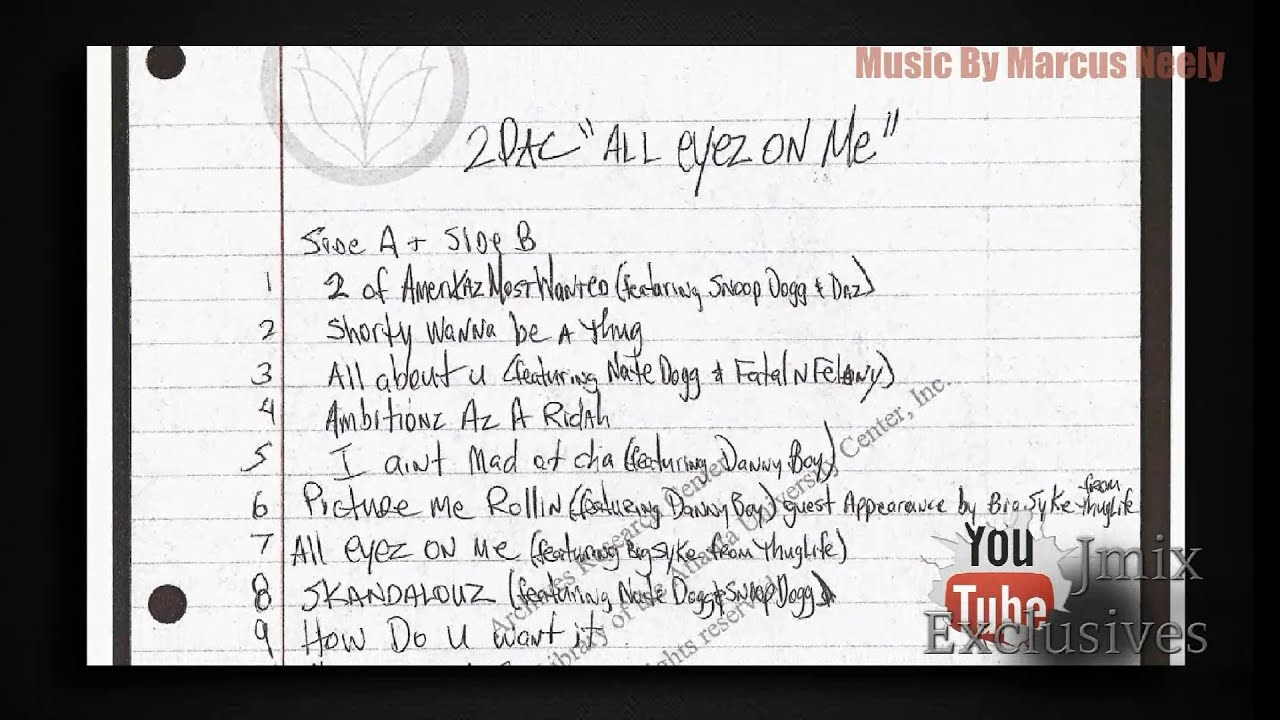 Music By Marcus Neely
2PAC "ALL eyez ON Me"
Side A + Side B
1 2 of AmeriKaz Most Wanted (featuring Snoop Dogg & Daz)
2 Shorty Wanna be A Thug
3 All about u (featuring Nate Dogg & Fatal N Felony)
4 Ambitionz Az A Ridah
5 I aint Mad at cha (featuring Danny Boy)
6 Picture Me Rollin (featuring Danny Boy) guest Appearance by Big Syke from Thuglife
7 All eyez ON Me (featuring Big Syke from Thuglife)
8 SKANDALOUZ (featuring Nate Dogg & Snoop Dogg)
9 How Do U Want it
Archives Research Center
Library of the Atlanta University Center, Inc.
rights reserved
You
Tube
Jmix
Exclusives